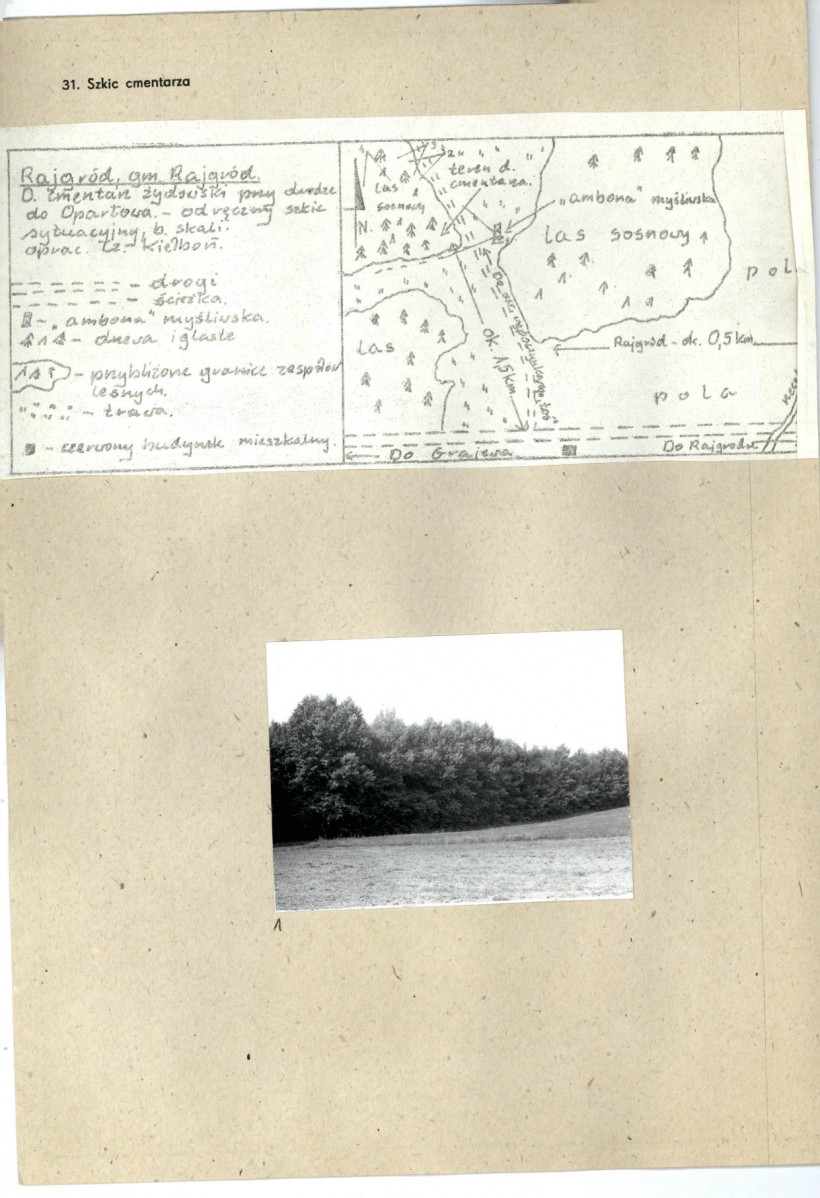 31. Szkic cmentarza
Rajgród, gm. Rajgród.
D. cmentarz żydowski przy drodze
do Opartowa. - odręczny szkic
sytuacyjny, b. skali.
oprac. Cz. Kiełboń.
- drogi
- ścieżka.
- „ambona" myśliwska.
- drzewa iglaste
- przybliżone granice zespołów
leśnych.
- trawa.
- czerwony budynek mieszkalny.
teren d.
cmentarza.
las
sosnowy
N.
„ambona" myśliwska
las sosnowy
pol
las
ok. 1,5 km
Rajgród - ok. 0,5 km
pola
Do Grajewa
Do Rajgrodu
1